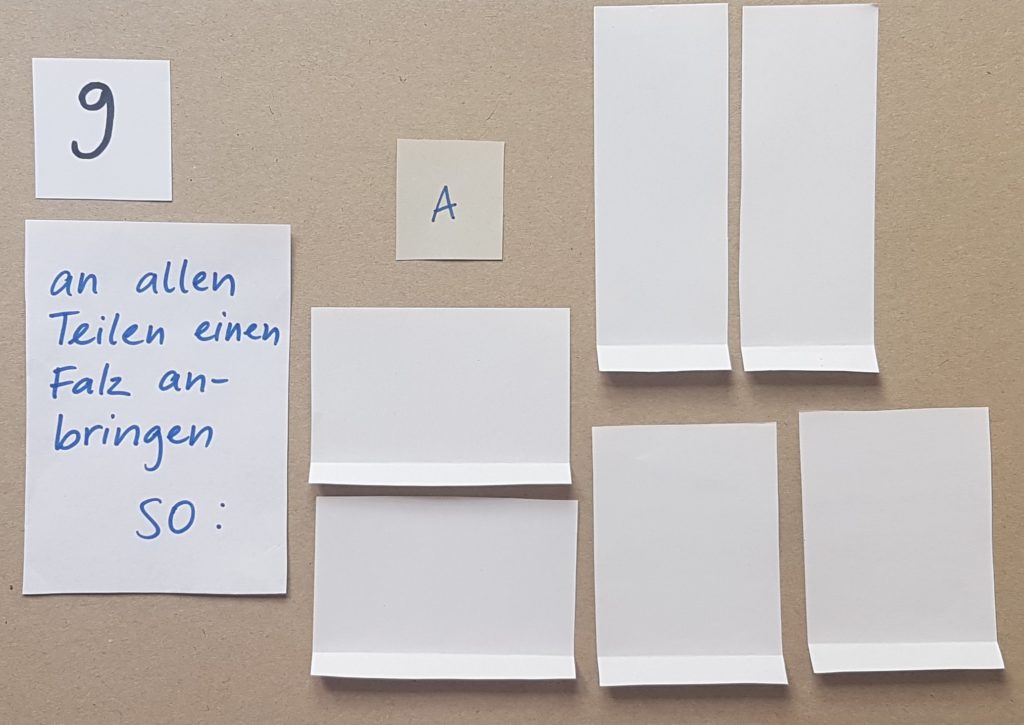 9
an allen
Teilen einen
Falz an-
bringen
so:
A